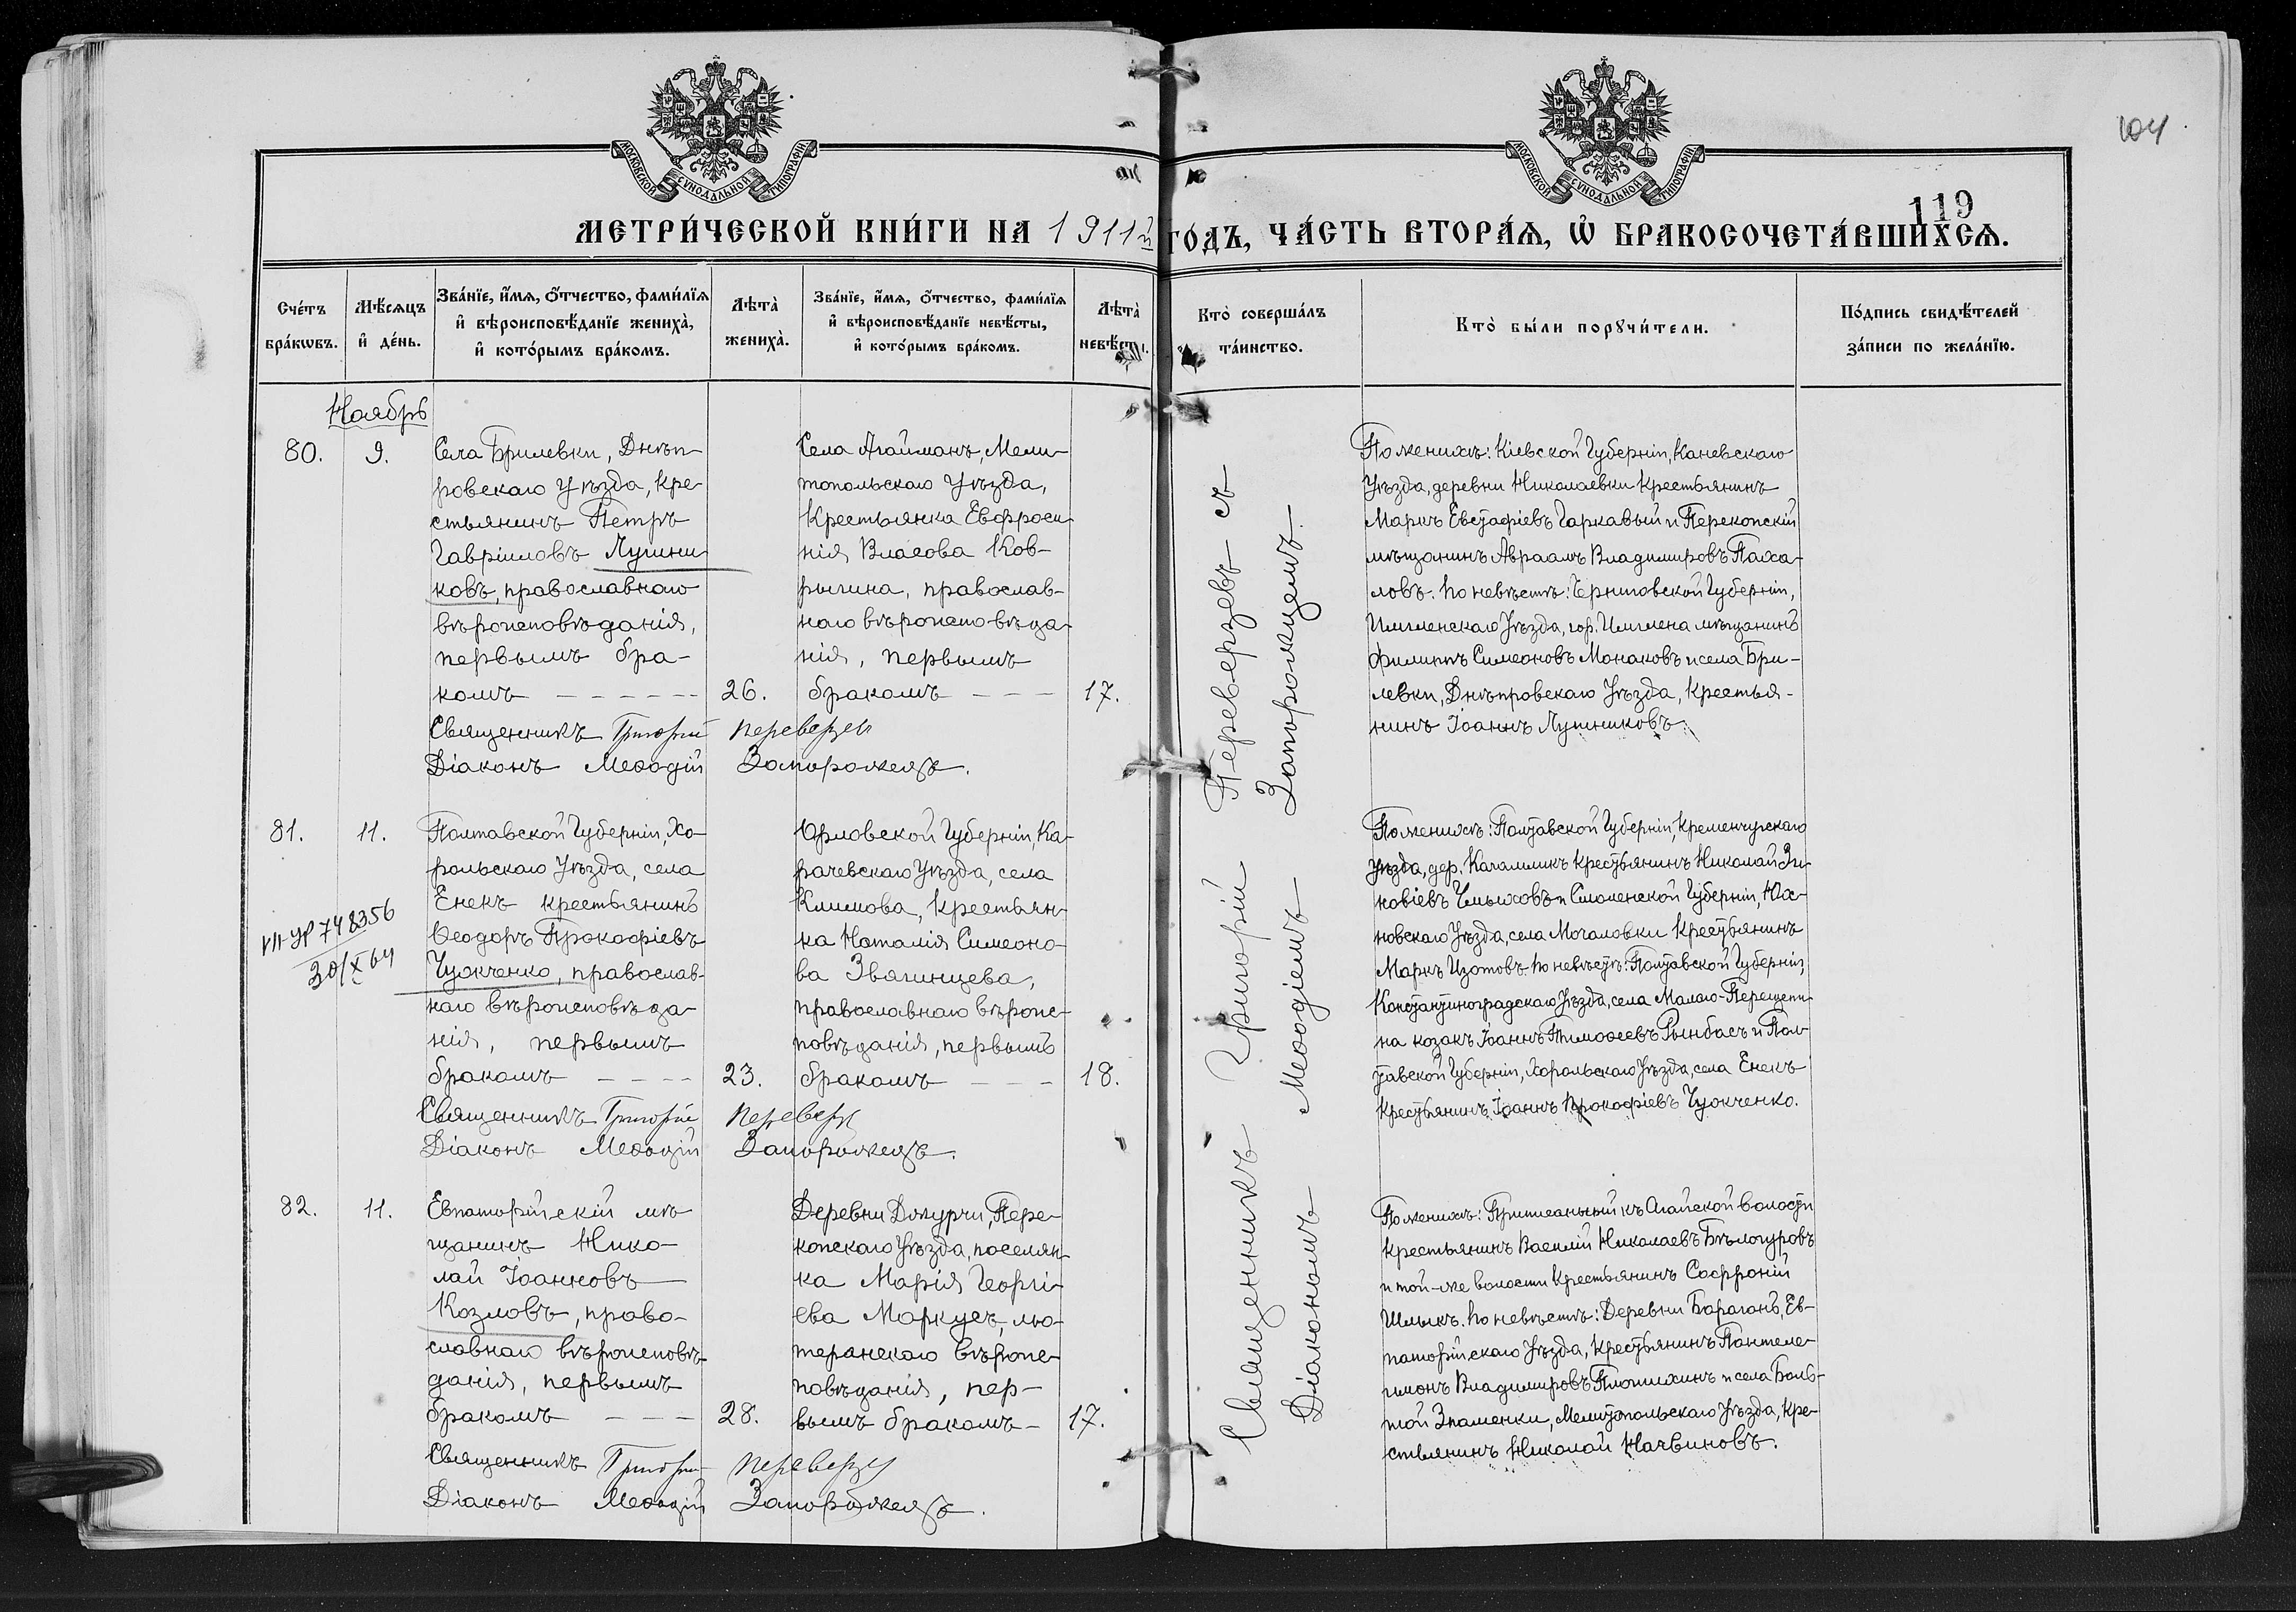 МОСКОВСКОЙ СѴНОДАЛЬНОЙ ТИПОГРАФІИ
МОСКОВСКОЙ СѴНОДАЛЬНОЙ ТИПОГРАФІИ
104
119
МЕТРИ́ЧЕСКОЙ КНИ́ГИ НА 1911й ГО́ДЪ, ЧА́СТЬ ВТОРА́Ѧ, Ѽ БРАКОСОЧЕТА́ВШИХСѦ.
Сче́тъ бра́кѡвъ.
Мѣ́сяцъ и҆ де́нь.
Зва́нїе, и҆́мѧ, ѻ҆́тчество, фами́лїѧ
и҆ вѣроисповѣ́данїе жениха̀,
и҆ кото́рымъ бра́комъ.
Лѣта̀ жениха̀.
Зва́нїе, и҆́мѧ, ѻ҆́тчество, фами́лїѧ
и҆ вѣроисповѣ́данїе невѣ́сты,
и҆ кото́рымъ бра́комъ.
Лѣта̀ невѣ́сты.
Кто̀ соверша́лъ та́инство.
Кто̀ бы́ли порꙋчи́тели.
По́дпись свидѣ́телей за́писи по жела́нїю.
Ноябрь
80.
9.
Села Брилевки, Днѣп-
ровскаго Уѣзда, кре-
стьянинъ Петръ
Гавріиловъ Лушни-
ковъ, православнаго
вѣроисповѣданія,
первымъ бра-
комъ - - - - - -
26.
Села Агайманъ, Мели-
топольскаго Уѣзда,
крестьянка Евфроси-
нія Власова Ков-
рыгина, православ-
наго вѣроисповѣда-
нія, первымъ
бракомъ - - -
17.
Священникъ Григорій Переверзев
Діаконъ Меѳодій Запорожецъ.
По женихѣ: Кіевской Губерніи, Каневскаго
Уѣзда, деревни Николаевки крестьянинъ
Маркъ Евстафіевъ Гаркавый и Перекопскій
мѣщанинъ Авраамъ Владимировъ Паха-
ловъ. По невѣстѣ: Черниговской Губерніи,
Уѣзда, гор. мѣщанинъ
Филиппъ Симеоновъ Монаковъ и села Бри-
левки, Днѣпровскаго Уѣзда, крестья-
нинъ Іоаннъ Лушниковъ.
81.
11.
Полтавской Губерніи, Хо-
рольскаго Уѣзда, села
Енекъ крестьянинъ
Ѳеодоръ Прокофіевъ
православ-
наго вѣроисповѣда-
нія, первымъ
бракомъ - - - -
23.
VII-УР 748356
30/X 64
Орловской Губерніи, Ка-
рачевскаго Уѣзда, села
Климова, крестьян-
ка Наталія Симеоно-
ва Звягинцева,
православнаго вѣроис-
повѣданія, первымъ
бракомъ - - -
18.
Священникъ Григорій Переверз
Діаконъ Меѳодій Запорожецъ.
По женихѣ: Полтавской Губерніи, Кременчугскаго
Уѣзда, дер. Кагамликъ крестьянинъ Николай Зи-
новіевъ и Смоленской Губерніи, Юх-
новскаго Уѣзда, села Мочаловки крестьянинъ
Маркъ Изотовъ. По невѣстѣ: Полтавской Губерніи,
Константиноградскаго Уѣзда, села Малаго-Перещепи-
на козакъ Іоаннъ Тимоѳеевъ Рындасъ и Пол-
тавской Губерніи, Хорольскаго Уѣзда, села Енекъ
крестьянинъ Іоаннъ Прокофіевъ
82.
11.
Евпаторійскій мѣ-
щанинъ Нико-
лай Іоанновъ
Козловъ, право-
славнаго вѣроисповѣ-
данія, первымъ
бракомъ - - -
28.
Деревни Джурчи, Пере-
копскаго Уѣзда, поселян-
ка Марія Георгі-
ева Маркусъ, лю-
теранскаго вѣроис-
повѣданія, пер-
вымъ бракомъ -
17.
Священникъ Григорій Переверзев
Діаконъ Меѳодій Запорожецъ.
По женихѣ: Приписанный къ Агайской волости
крестьянинъ Василій Николаевъ Бѣлогуровъ
и той-же волости крестьянинъ Софроній
Шлыкъ. По невѣстѣ: Деревни Бараганъ, Ев-
паторійскаго Уѣзда, крестьянинъ Пантеле-
имонъ Владимировъ Плотихинъ и села Боль-
шой Знаменки, Мелитопольскаго Уѣзда, кре-
стьянинъ Николай Начвиновъ.
Священникъ Григорій Переверзевъ съ
Діакономъ Меѳодіемъ Запорожцемъ.